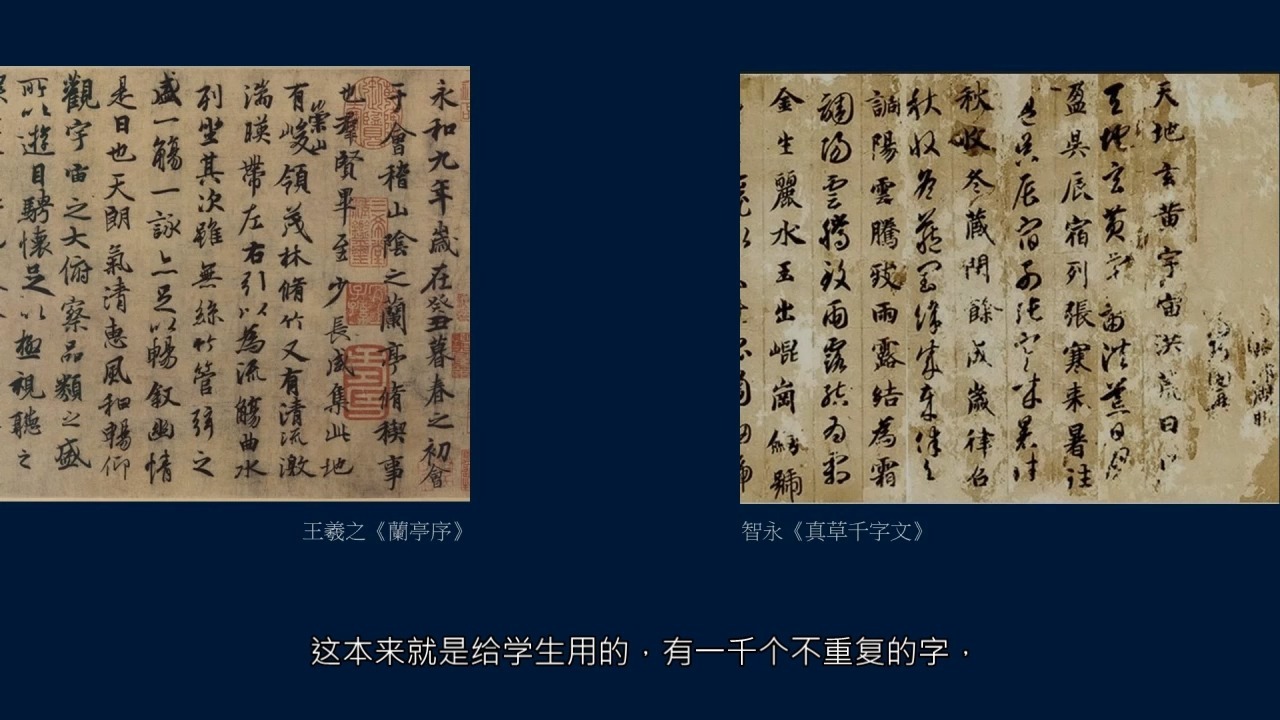 永和九年歲在癸丑暮春之初會
于會稽山陰之蘭亭脩稧事
也羣賢畢至少長咸集此地
有崇山峻領茂林脩竹又有清流激
湍暎帶左右引以為流觴曲水
列坐其次雖無絲竹管弦之
盛一觴一詠亦足以暢叙幽情
是日也天朗氣清惠風和暢仰
觀宇宙之大俯察品類之盛
所以遊目騁懷足以極視聽之
天地玄黃宇宙洪荒日
天地玄黃宇宙洪荒日月
盈昃辰宿列張寒来暑往
盈昃辰宿列張寒来暑往
秋收冬藏閏餘成歲律吕
秋收冬藏閏餘成歲律吕
調陽雲騰致雨露結為霜
調陽雲騰致雨露結為霜
金生麗水玉出崐崗劍號
王羲之《蘭亭序》
智永《真草千字文》
这本来就是给学生用的，有一千个不重复的字，